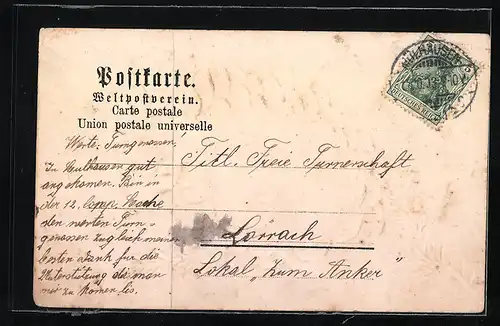 Postkarte.
Weltpostverein.
Carte postale
Union postale universelle
Werte Turngenossen,
In Mulhausen gut
angekomen. Bin in
der 12. Copp. Sache
den werten Turn
genossen zugleich meinen
besten Dank für die
Unterstützung die man
mir zu komen lis.
Titl. Freie Turnerschaft
Lörrach
Lokal „zum Anker"
MÜLHAUSEN
DEUTSCHES REICH